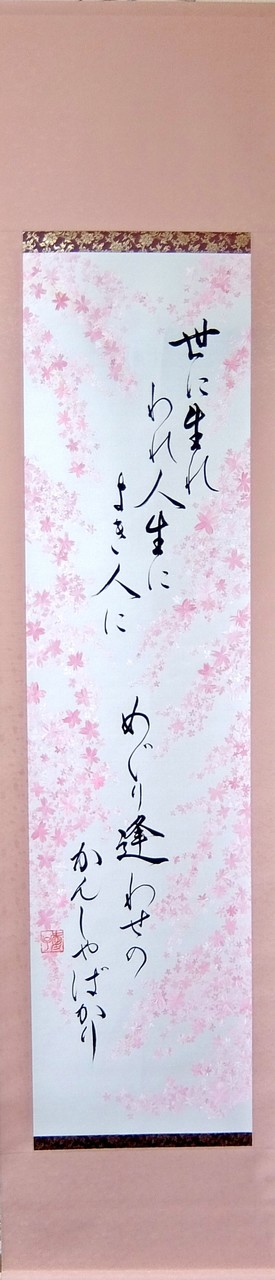 世に生れ
われ人生に
よき人に
めぐり逢わせの
かんしゃばかり